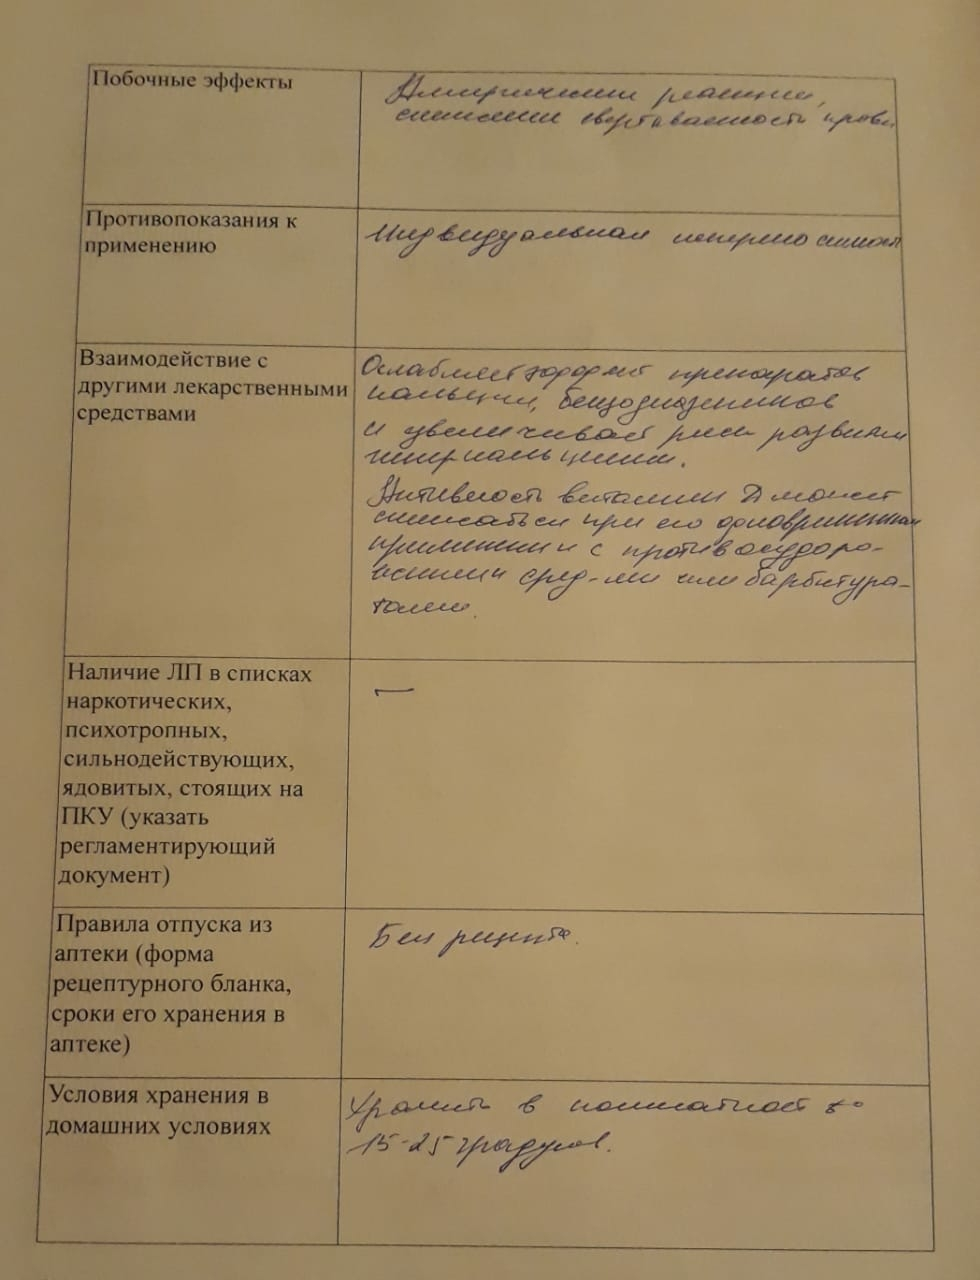 Побочные эффекты
Аллергические реакции,
снижение свертываемость крови
Противопоказания к
применению
Индвидуальная непереносимост
Взаимодействие с
другими лекарственными
средствами
Ослабляет эффект препаратов
кальция,
и увеличивает риск развития
гиперкальциемии.
Активность витамин Д может
снижаться при его одновременном
применении с противосудоро-
жными сред-ми или барбитура-
тами.
Наличие ЛП в списках
наркотических,
психотропных,
сильнодействующих,
ядовитых, стоящих на
ПКУ (указать
регламентирующий
документ)
—
Правила отпуска из
аптеки (форма
рецептурного бланка,
сроки его хранения в
аптеке)
Без рецепта.
Условия хранения в
домашних условиях
Хранить в
15-25 градусов.